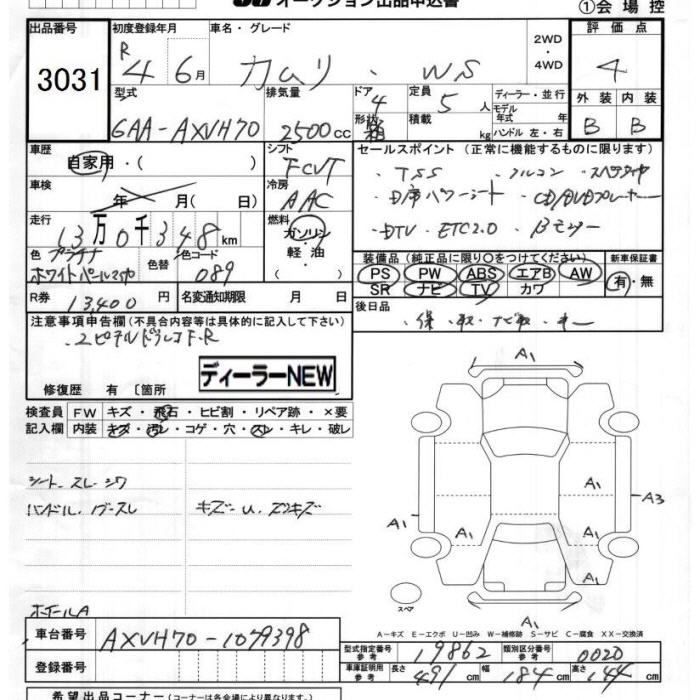 オークション出品申込書
①会場控
出品番号
3031
初度登録年月
R 4 6月
車名・グレード
カムリ・WS
2WD・4WD
評価点
4
型式
6AA-AXVH70
排気量
2500cc
ドア
4
形状
定員
5人
積載 kg
ディーラー・並行
モデル年式 年
ハンドル 左・右
外装 内装
B B
車歴
自家用・( )
シフト
FCVT
セールスポイント (正常に機能するものに限ります)
・TSS
・D席パワーシート ・CD/DVDプレーヤー
・DTV ・ETC2.0 ・Bモニター
車検
年 月( 日)
冷房
AAC
走行
13万0千348km
燃料
ガソリン・軽油
色
プラチナホワイトパールマイカ
色替
色コード
089
装備品 (純正品に限り○をつけてください)
PS PW ABS エアB AW
SR ナビ TV カワ
新車保証書
有・無
R券
13,400円
名変通知期限 月 日
後日品
・保・取・ナビ取・キー
注意事項申告欄(不具合内容等は具体的に記入して下さい)
ディーラーNEW
修復歴 有 〔箇所
検査員記入欄
FW キズ・飛石・ヒビ割・リペア跡・×要
内装 キズ・汚レ・コゲ・穴・スレ・キレ・破レ
シート スレ シワ
ハンドル
キズ
ホイールA
A1
A1
A1
A3
A1
A1
A1
A1
スペア
A−キズ E−エクボ U−凹み W−補修跡 S−サビ C−腐食 XX−交換済
車台番号
AXVH70-1079398
登録番号
型式指定番号 参考
19862
類別区分番号 参考
0020
車庫証明用 参考
長さ 491cm 幅 184cm 高さ 144cm
希望出品コーナー(コーナーは各会場により異なります。)